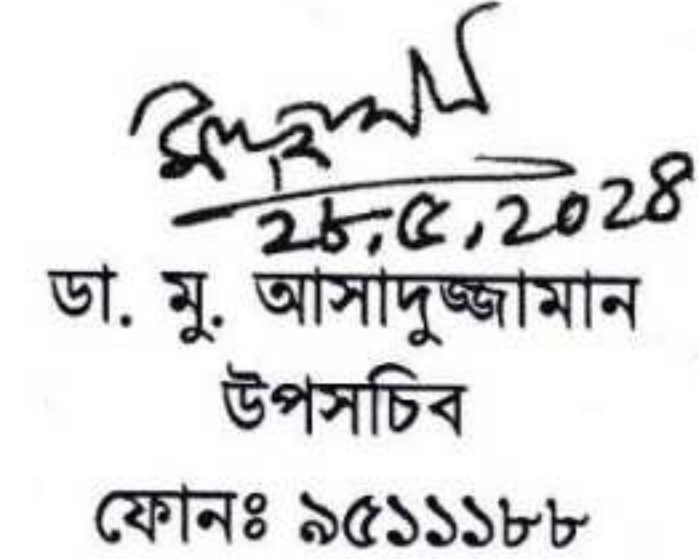 ২৮.৫.২০২৪
ডা. মু. আসাদুজ্জামান
উপসচিব
ফোনঃ ৯৫১১১৮৮